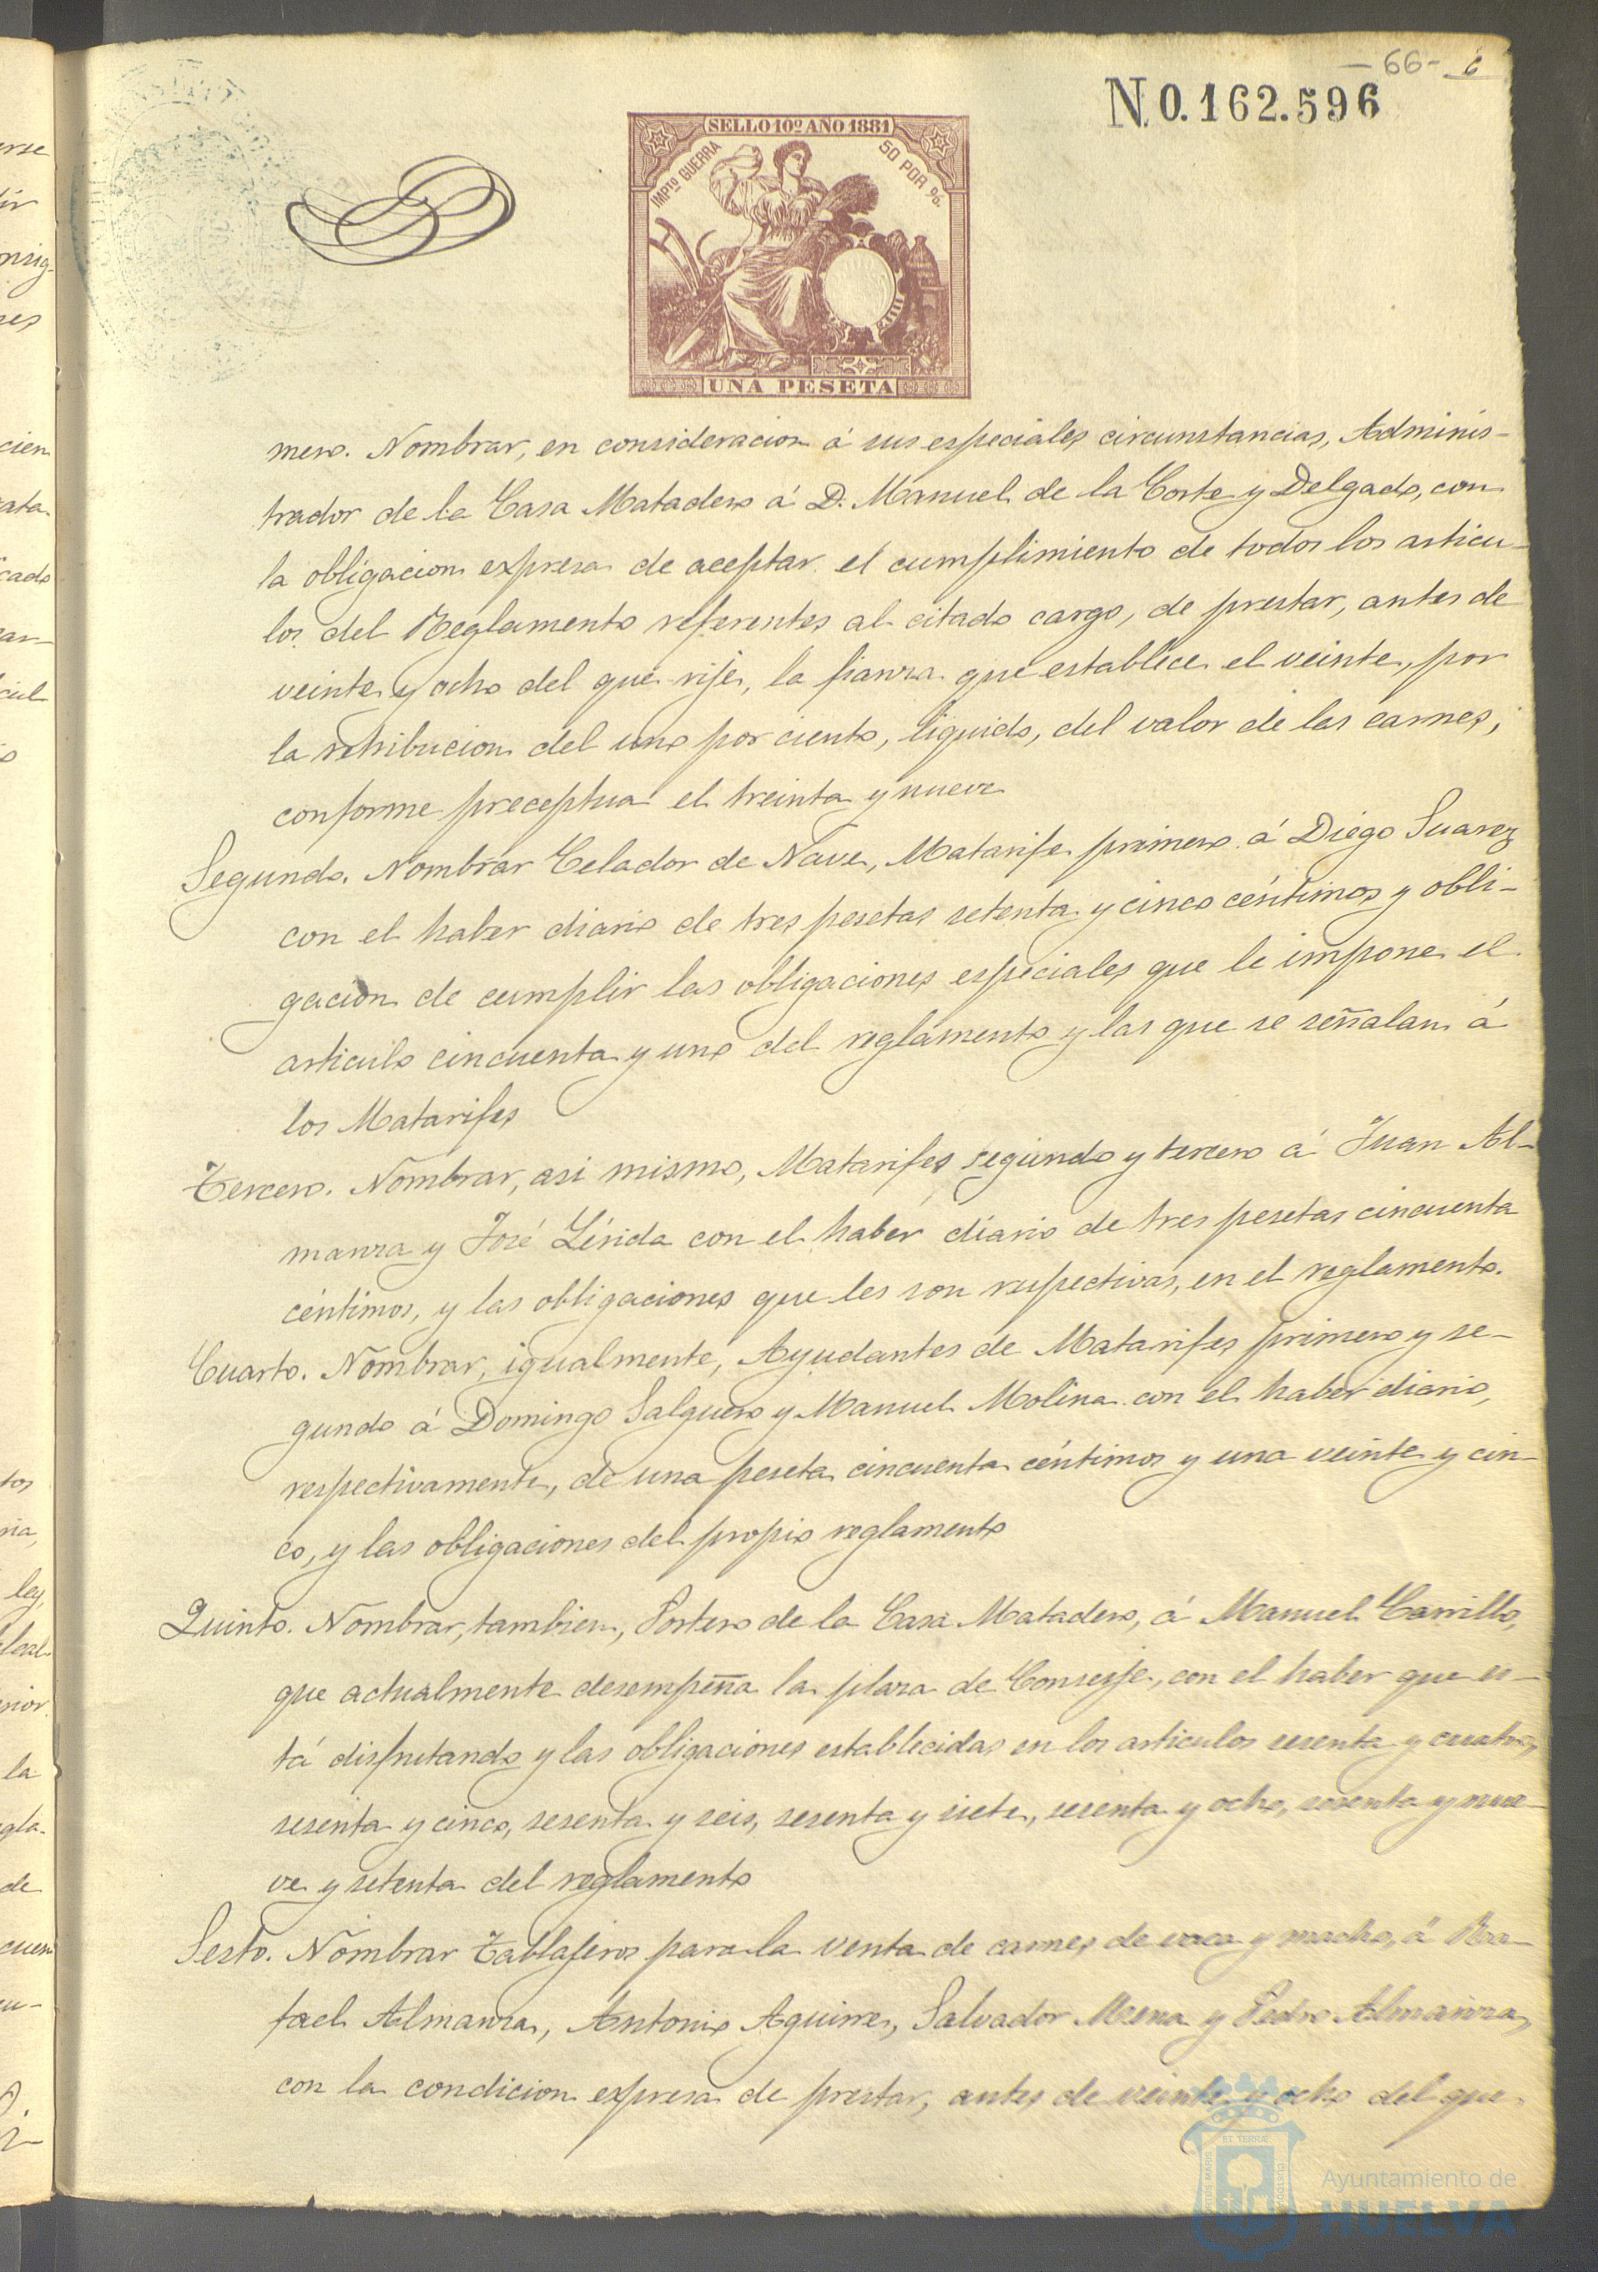 -66- 6
N 0.162.596
SELLO 10º AÑO 1881
IMPTO GUERRA
50 POR %.
UNA PESETA
mero. Nombrar, en consideracion á sus especiales circunstancias, Adminis-
trador de la Casa Matadero á D. Manuel de la Corte y Delgado, con
la obligacion expresa de aceptar el cumplimiento de todos los articu-
los del Reglamento referentes al citado cargo, de prestar, antes de
veinte y ocho del que rije, la fianza que establece el veinte, por
la retribucion del uno por ciento, liquido, del valor de las carnes,
conforme preceptua el treinta y nueve
Segundo. Nombrar Celador de Nave, Matarife primero á Diego Suarez
con el haber diario de tres pesetas setenta y cinco céntimos y obli-
gacion de cumplir las obligaciones especiales que le impone el
articulo cincuenta y uno del reglamento y las que se señalan á
los Matarifes
Tercero. Nombrar, asi mismo, Matarifes segundo y tercero á Juan Al-
manza y José Lérida con el haber diario de tres pesetas cincuenta
céntimos, y las obligaciones que les son respectivas, en el reglamento.
Cuarto. Nombrar, igualmente, Ayudantes de Matarifes primero y se-
gundo á Domingo Salguero y Manuel Molina con el haber diario,
respectivamente, de una peseta cincuenta céntimos y una veinte y cin-
co, y las obligaciones del propio reglamento
Quinto. Nombrar, tambien, Portero de la Casa Matadero, á Manuel Carrillo,
que actualmente desempeña la plaza de Conserje, con el haber que es-
tá disfrutando y las obligaciones establecidas en los articulos sesenta y cuatro,
sesenta y cinco, sesenta y seis, sesenta y siete, sesenta y ocho, sesenta y nue-
ve y setenta del reglamento
Sesto. Nombrar Tablajeros para la venta de carnes de vaca y macho, á Ra-
fael Almanza, Antonio Aguirre, Salvador Mena y Pedro Almanza,
con la condicion expresa de prestar, antes de veinte y ocho del que
Ayuntamiento de
HUELVA